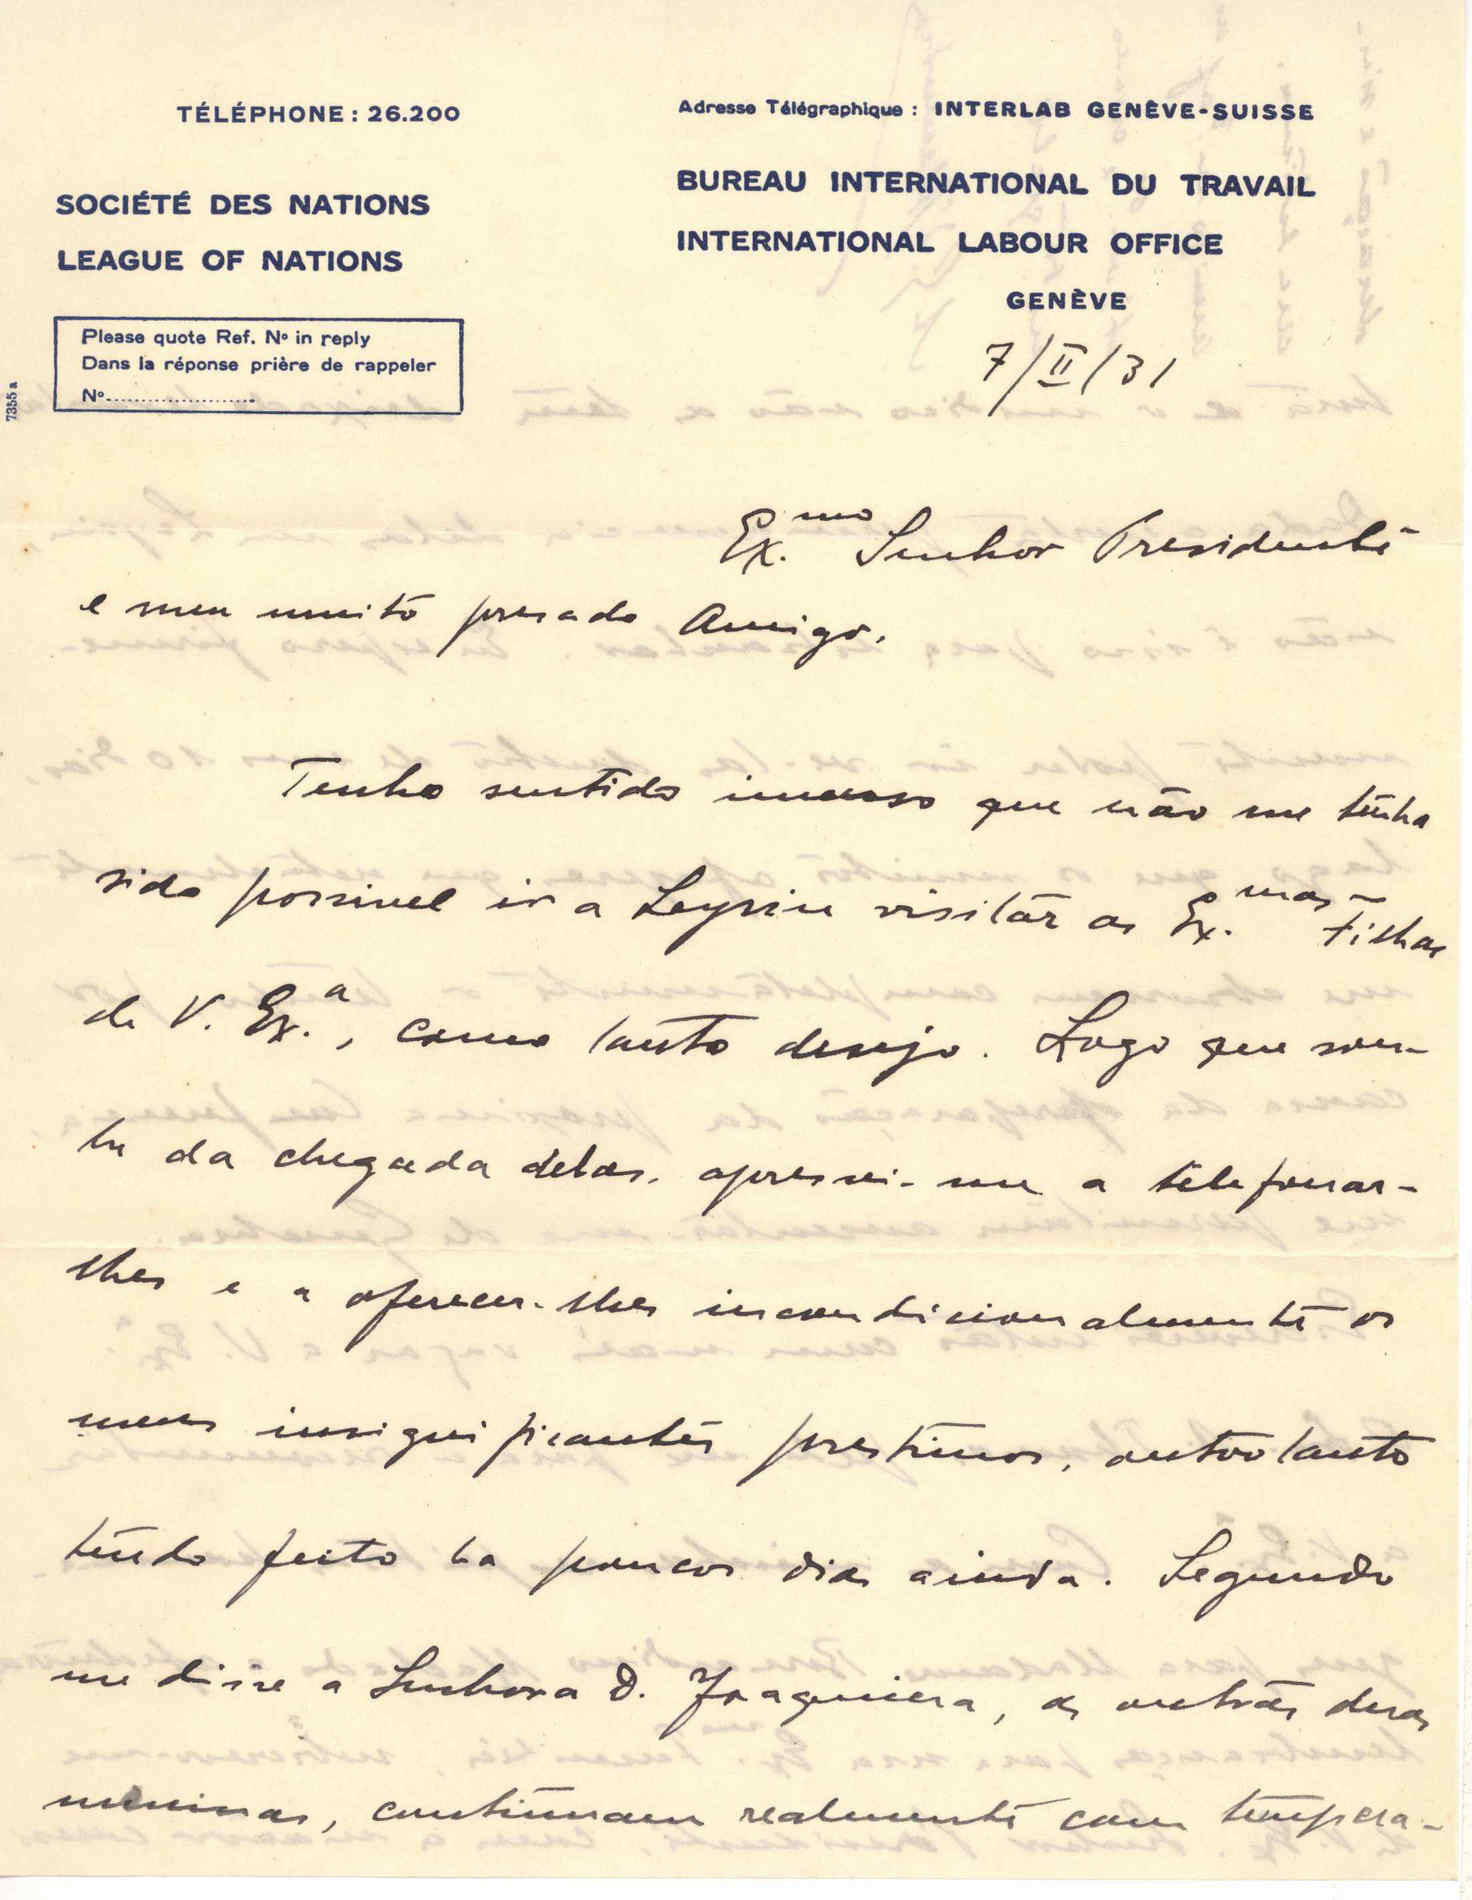 TÉLÉPHONE : 26.200
Adresse Télégraphique : INTERLAB GENÈVE-SUISSE
SOCIÉTÉ DES NATIONS
LEAGUE OF NATIONS
BUREAU INTERNATIONAL DU TRAVAIL
INTERNATIONAL LABOUR OFFICE
GENÈVE
Please quote Ref. Nº in reply
Dans la réponse prière de rappeler
Nº
7355 a
7/II/31
Ex.mo Senhor Presidente
e meu muito presado Amigo,
Tenho sentido imenso que não me tenha
sido possivel ir a Leysin visitar as Ex.mas Filhas
de V. Ex.a, como tanto desejo. Logo que sou-
be da chegada delas, apressei-me a telefonar-
lhes e a oferecer-lhes incondicionalmente os
meus insignificantes prestimos, outro tanto
tendo feito ha poucos dias ainda. Segundo
me disse a Senhora D. Joaquina, as outras duas
meninas, continuam realmente com tempera-